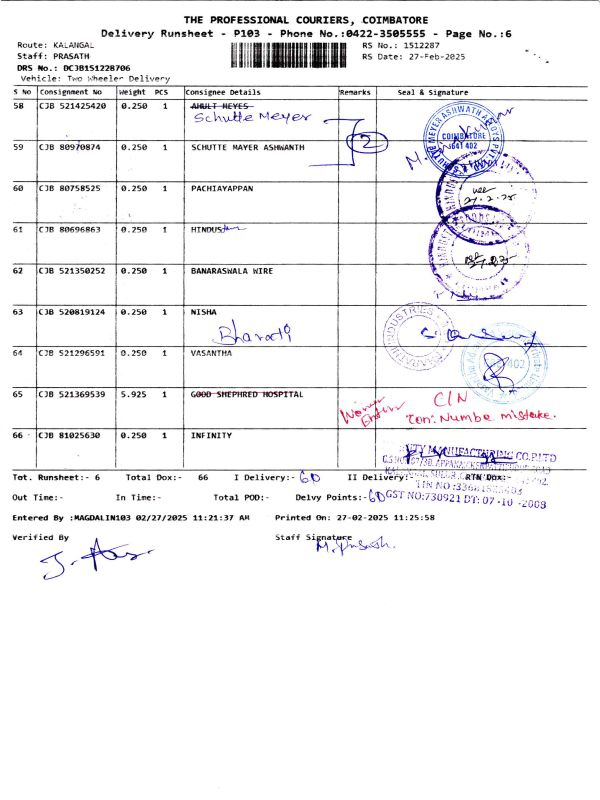 THE PROFESSIONAL COURIERS, COIMBATORE
Delivery Runsheet - P103 - Phone No.:0422-3505555 - Page No.:6
Route: KALANGAL
RS No.: 1512287
Staff: PRASATH
RS Date: 27-Feb-2025
DRS No.: DC3B151228706
Vehicle: Two Wheeler Delivery
S No Consignment No Weight PCS Consignee Details Remarks Seal & Signature
58 CJB 521425420 0.250 1 AMULT MEYES
Schutte Meyer
59 CJB 80970874 0.250 1 SCHUTTE MAYER ASHWANTH
2
SCHUTTE MEYER ASHWATH ALLOYS PVT
COIMBATORE
641 402
60 CJB 80758525 0.250 1 PACHIAYAPPAN
27.2.25
61 CJB 80696863 0.250 1 HINDUSTAN
62 CJB 521350252 0.250 1 BANARASWALA WIRE
63 CJB 520819124 0.250 1 NISHA
Bharati
INDUSTRIES
64 CJB 521296591 0.250 1 VASANTHA
402
65 CJB 521369539 5.925 1 GOOD SHEPHRED HOSPITAL
C/N
Con: Numbe mistake.
66 CJB 81025630 0.250 1 INFINITY
MANUFACTURING CO.P.LTD
Tot. Runsheet:- 6 Total Dox:- 66 I Delivery:- 60 II Delivery:- RTN Dox:-
Out Time:- In Time:- Total POD:- Delvy Points:- 60
GST NO:730921 DT: 07-10-2008
Entered By :MAGDALIN103 02/27/2025 11:21:37 AM Printed On: 27-02-2025 11:25:58
Verified By Staff Signature
M. Prasath.